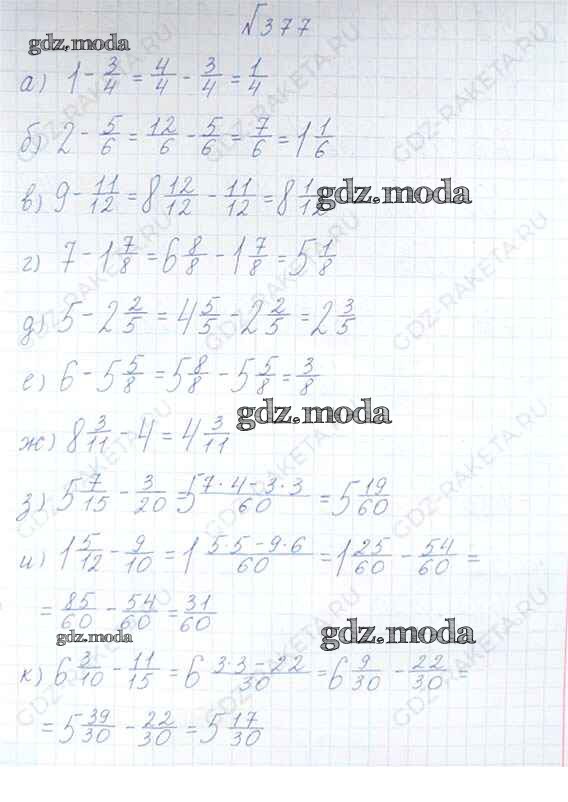 №377
gdz.moda
а) 1 - 3/4 = 4/4 - 3/4 = 1/4
б) 2 - 5/6 = 12/6 - 5/6 = 7/6 = 1 1/6
в) 9 - 11/12 = 8 12/12 - 11/12 = 8 1/12
gdz.moda
г) 7 - 1 7/8 = 6 8/8 - 1 7/8 = 5 1/8
д) 5 - 2 2/5 = 4 5/5 - 2 2/5 = 2 3/5
е) 6 - 5 5/8 = 5 8/8 - 5 5/8 = 3/8
gdz.moda
ж) 8 3/11 - 4 = 4 3/11
з) 5 7/15 - 3/20 = 5 (7·4-3·3)/60 = 5 19/60
и) 1 5/12 - 9/10 = 1 (5·5-9·6)/60 = 1 25/60 - 54/60 =
= 85/60 - 54/60 = 31/60
gdz.moda
gdz.moda
к) 6 3/10 - 11/15 = 6 (3·3-22)/30 = 6 9/30 - 22/30 =
= 5 39/30 - 22/30 = 5 17/30
GDZ-RAKETA.RU